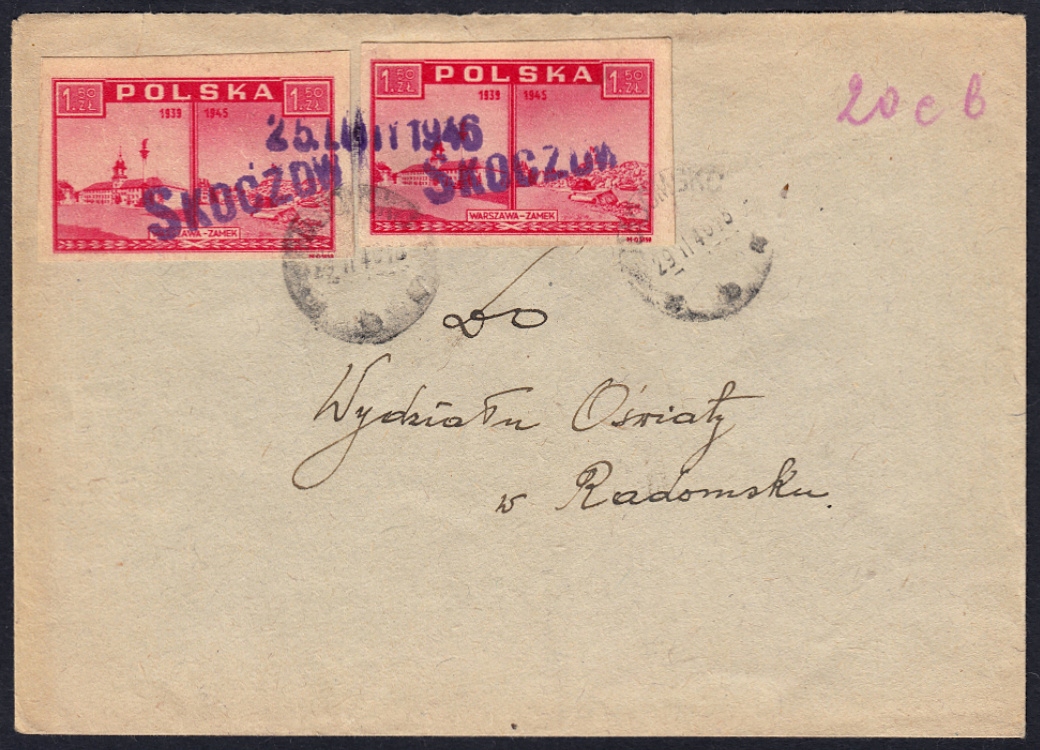 1.50 ZŁ POLSKA 1.50 ZŁ
1939 1945
1.50 ZŁ POLSKA 1.50 ZŁ
1939 1945
WARSZAWA-ZAMEK
-ZAMEK
25. LUTY 1946
SKOCZÓW
SKOCZÓW
20 c b
29 II 46 16
Do
Wydziału Oświaty
w Radomsku.